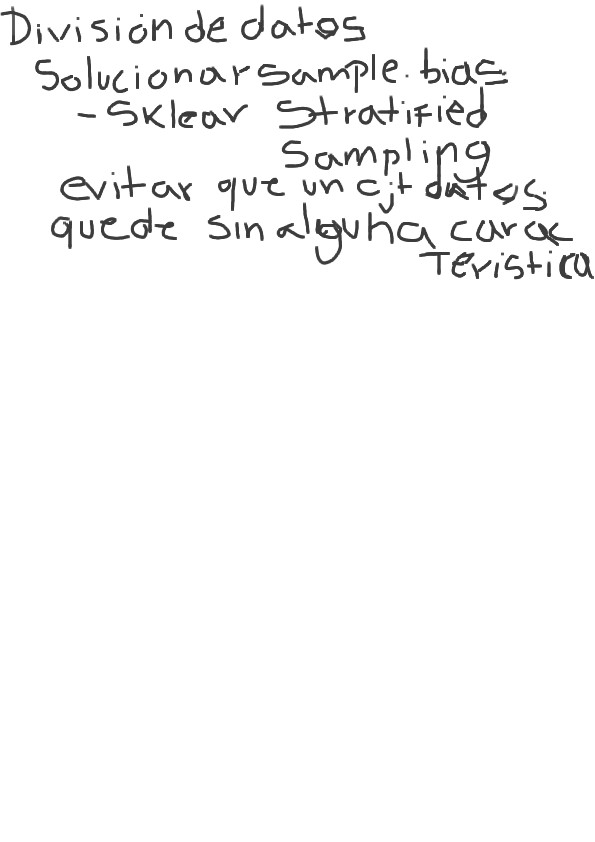 División de datos
Solucionar sample. bias.
- Sklear Stratified
Sampling
evitar que un cjt datos.
quede sin alguna carac
Teristica